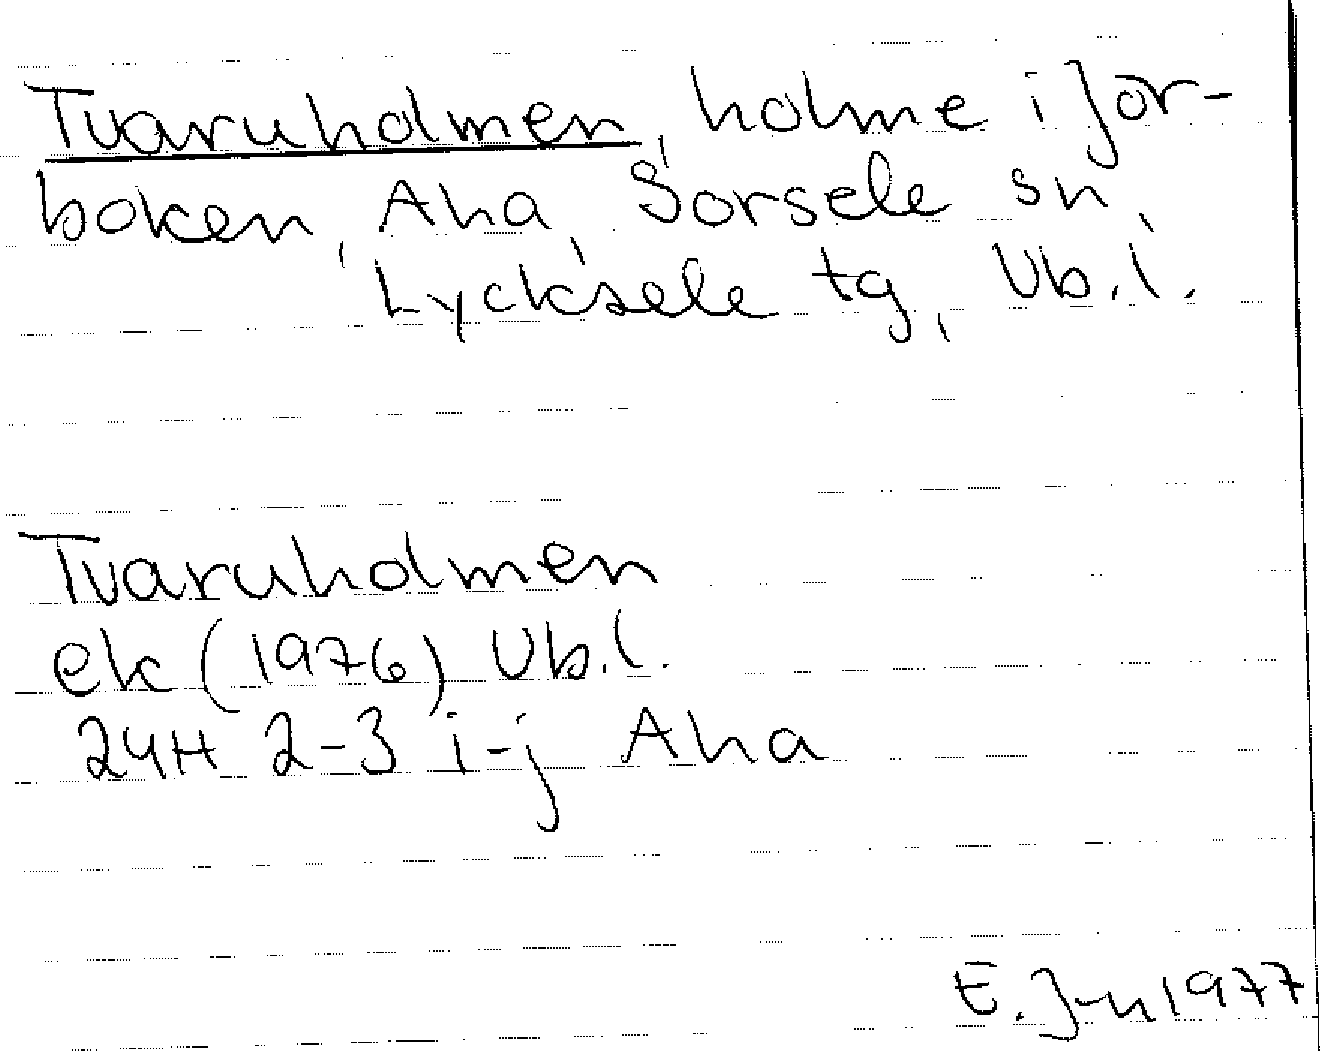 Tvaruholmen, holme i Jor-
boken, Aha, Sorsele sn,
Lycksele tg, Vb.l.
Tvaruholmen
ek (1976) Vb.l.
24H 2-3 i-j Aha
E. J-n 1977